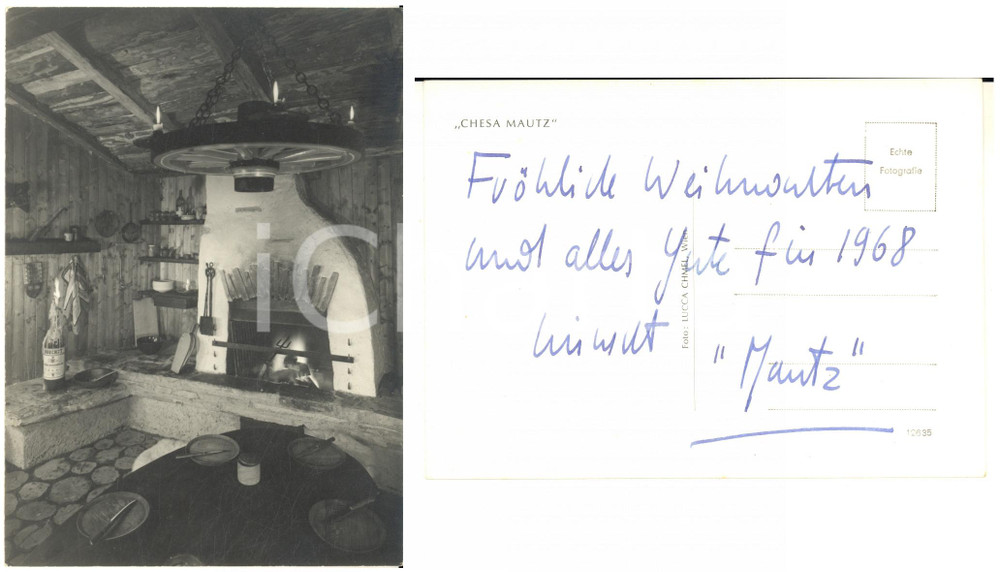 „CHESA MAUTZ“
Echte
Fotografie
Fröhliche Weihnachten
und alles Gute für 1968
wünscht
"Mautz"
Foto: LUCCA CHMEL, Wien
10695